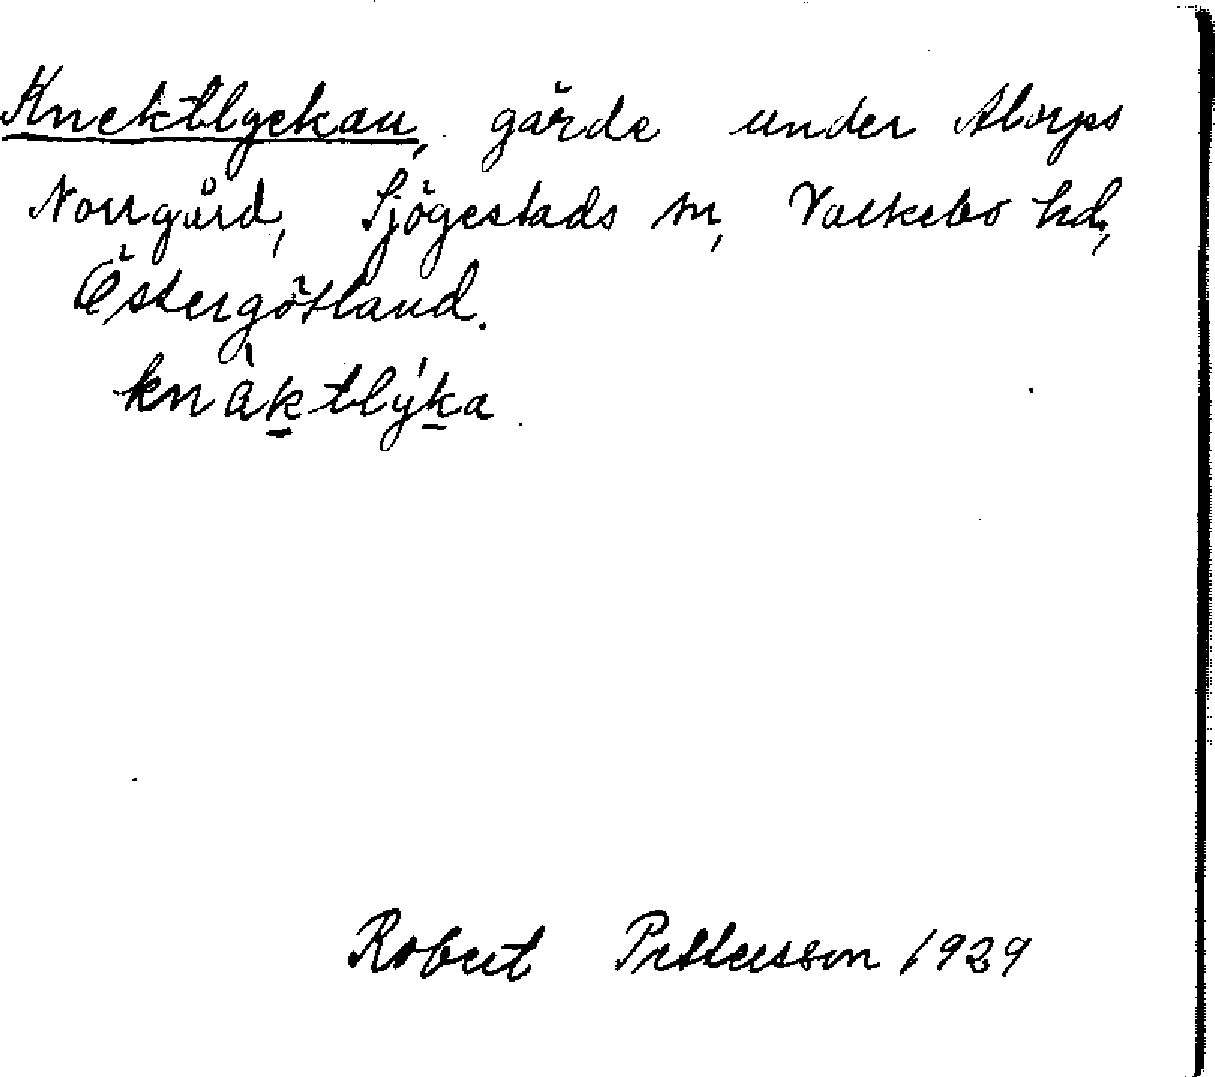 Knektlyckan, gärde under Alorps
Norrgård, Sjögestads sn, Valkebo hd,
Östergötland.
knäktlýka
Robert Pettersson 1929